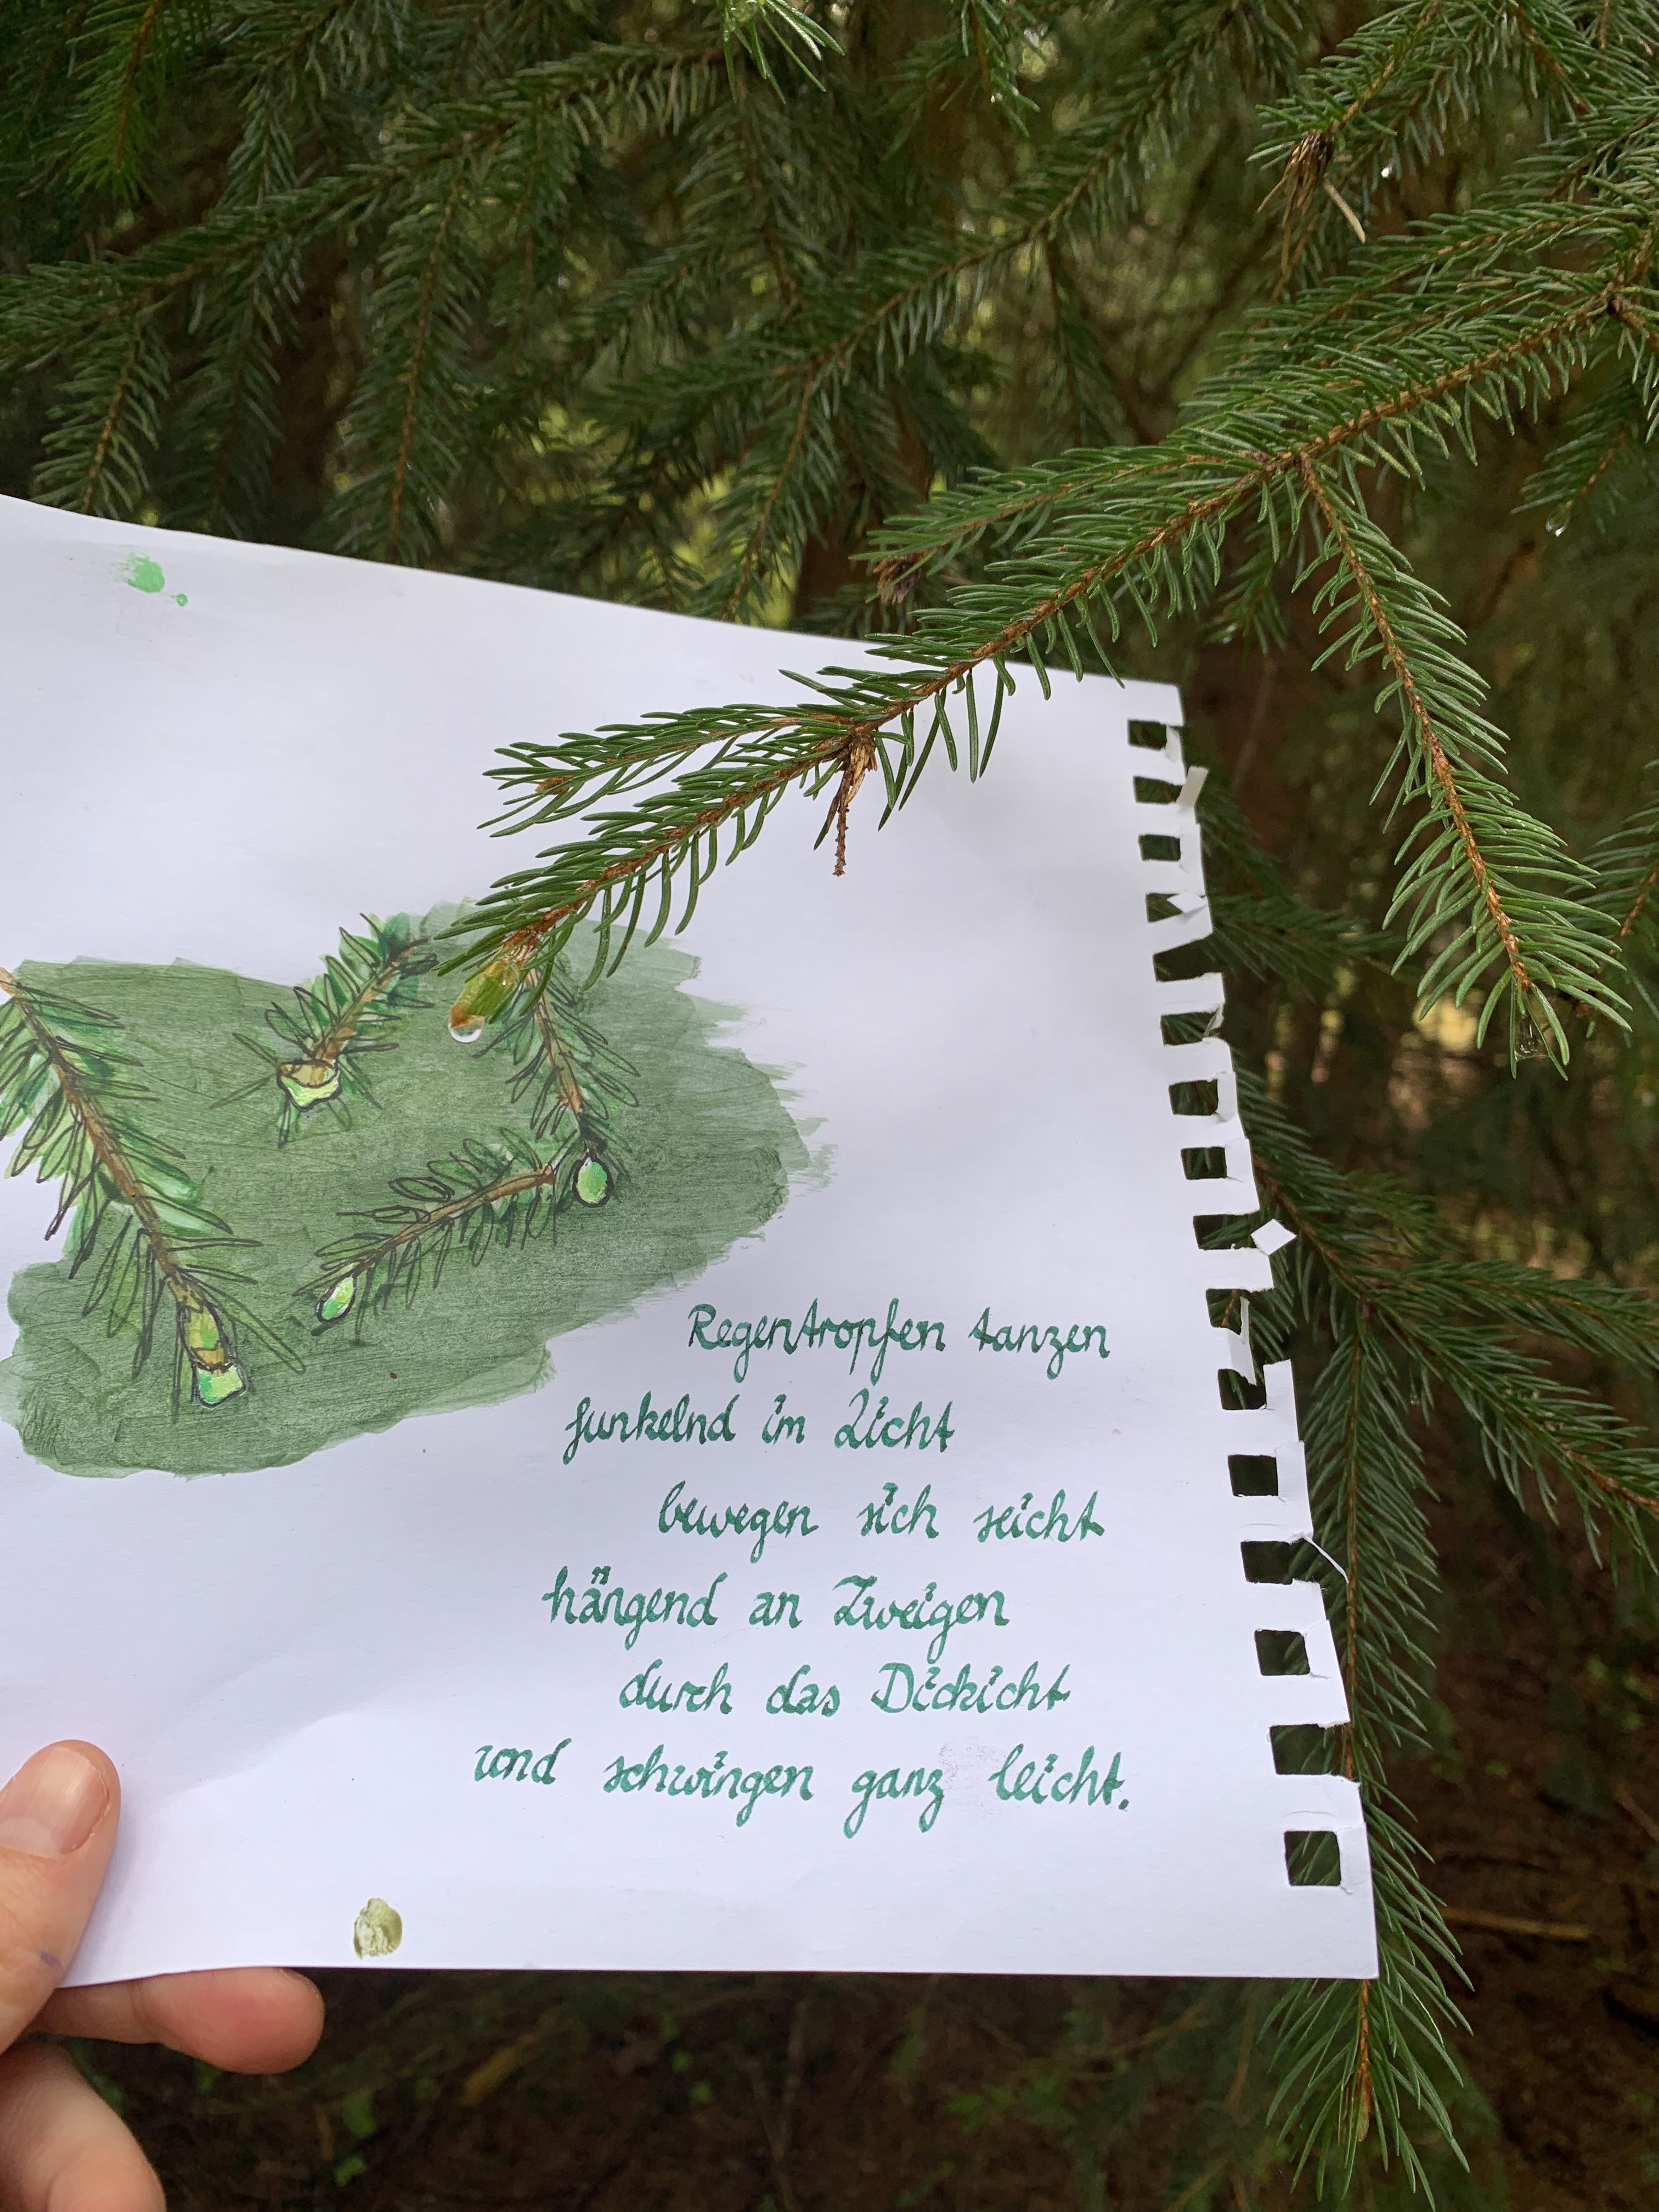 Regentropfen tanzen
funkelnd im Licht
bewegen sich seicht
hängend an Zweigen
durch das Dickicht
und schwingen ganz leicht.